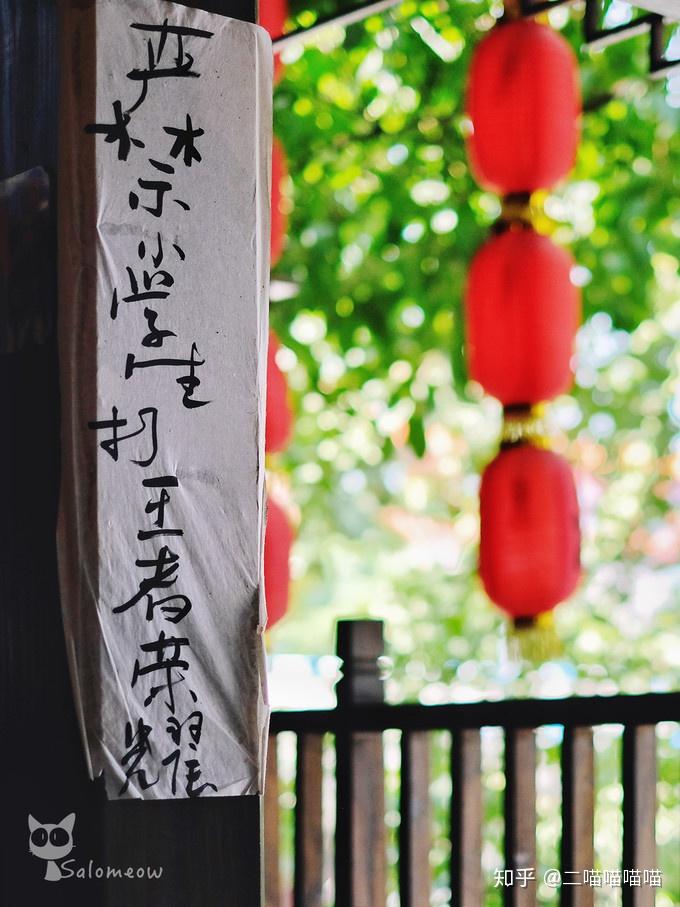 严禁小学生打王者荣耀
Salomeow
知乎 @二喵喵喵喵